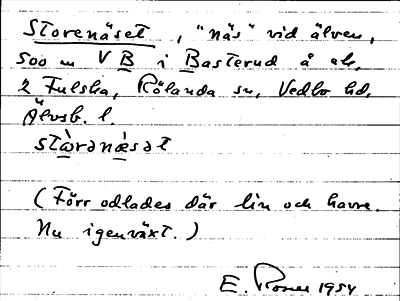 Storenäset, "näs" vid älven,
500 m V B i Basterud å ek.
2 Fulska, Rölanda sn, Vedbo hd,
Älvsb. l.
stὼrənæ̀sət
(Förr odlades där lin och havre.
Nu igenväxt.)
E. 1954